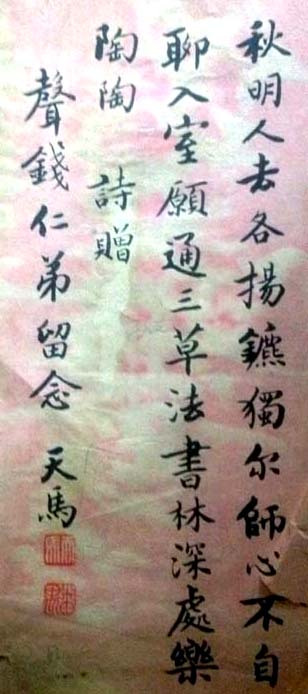 秋明人去各揚鑣獨尔師心不自
聊入室願通三草法書林深處樂
陶陶 詩贈
聲錢仁弟留念 天馬